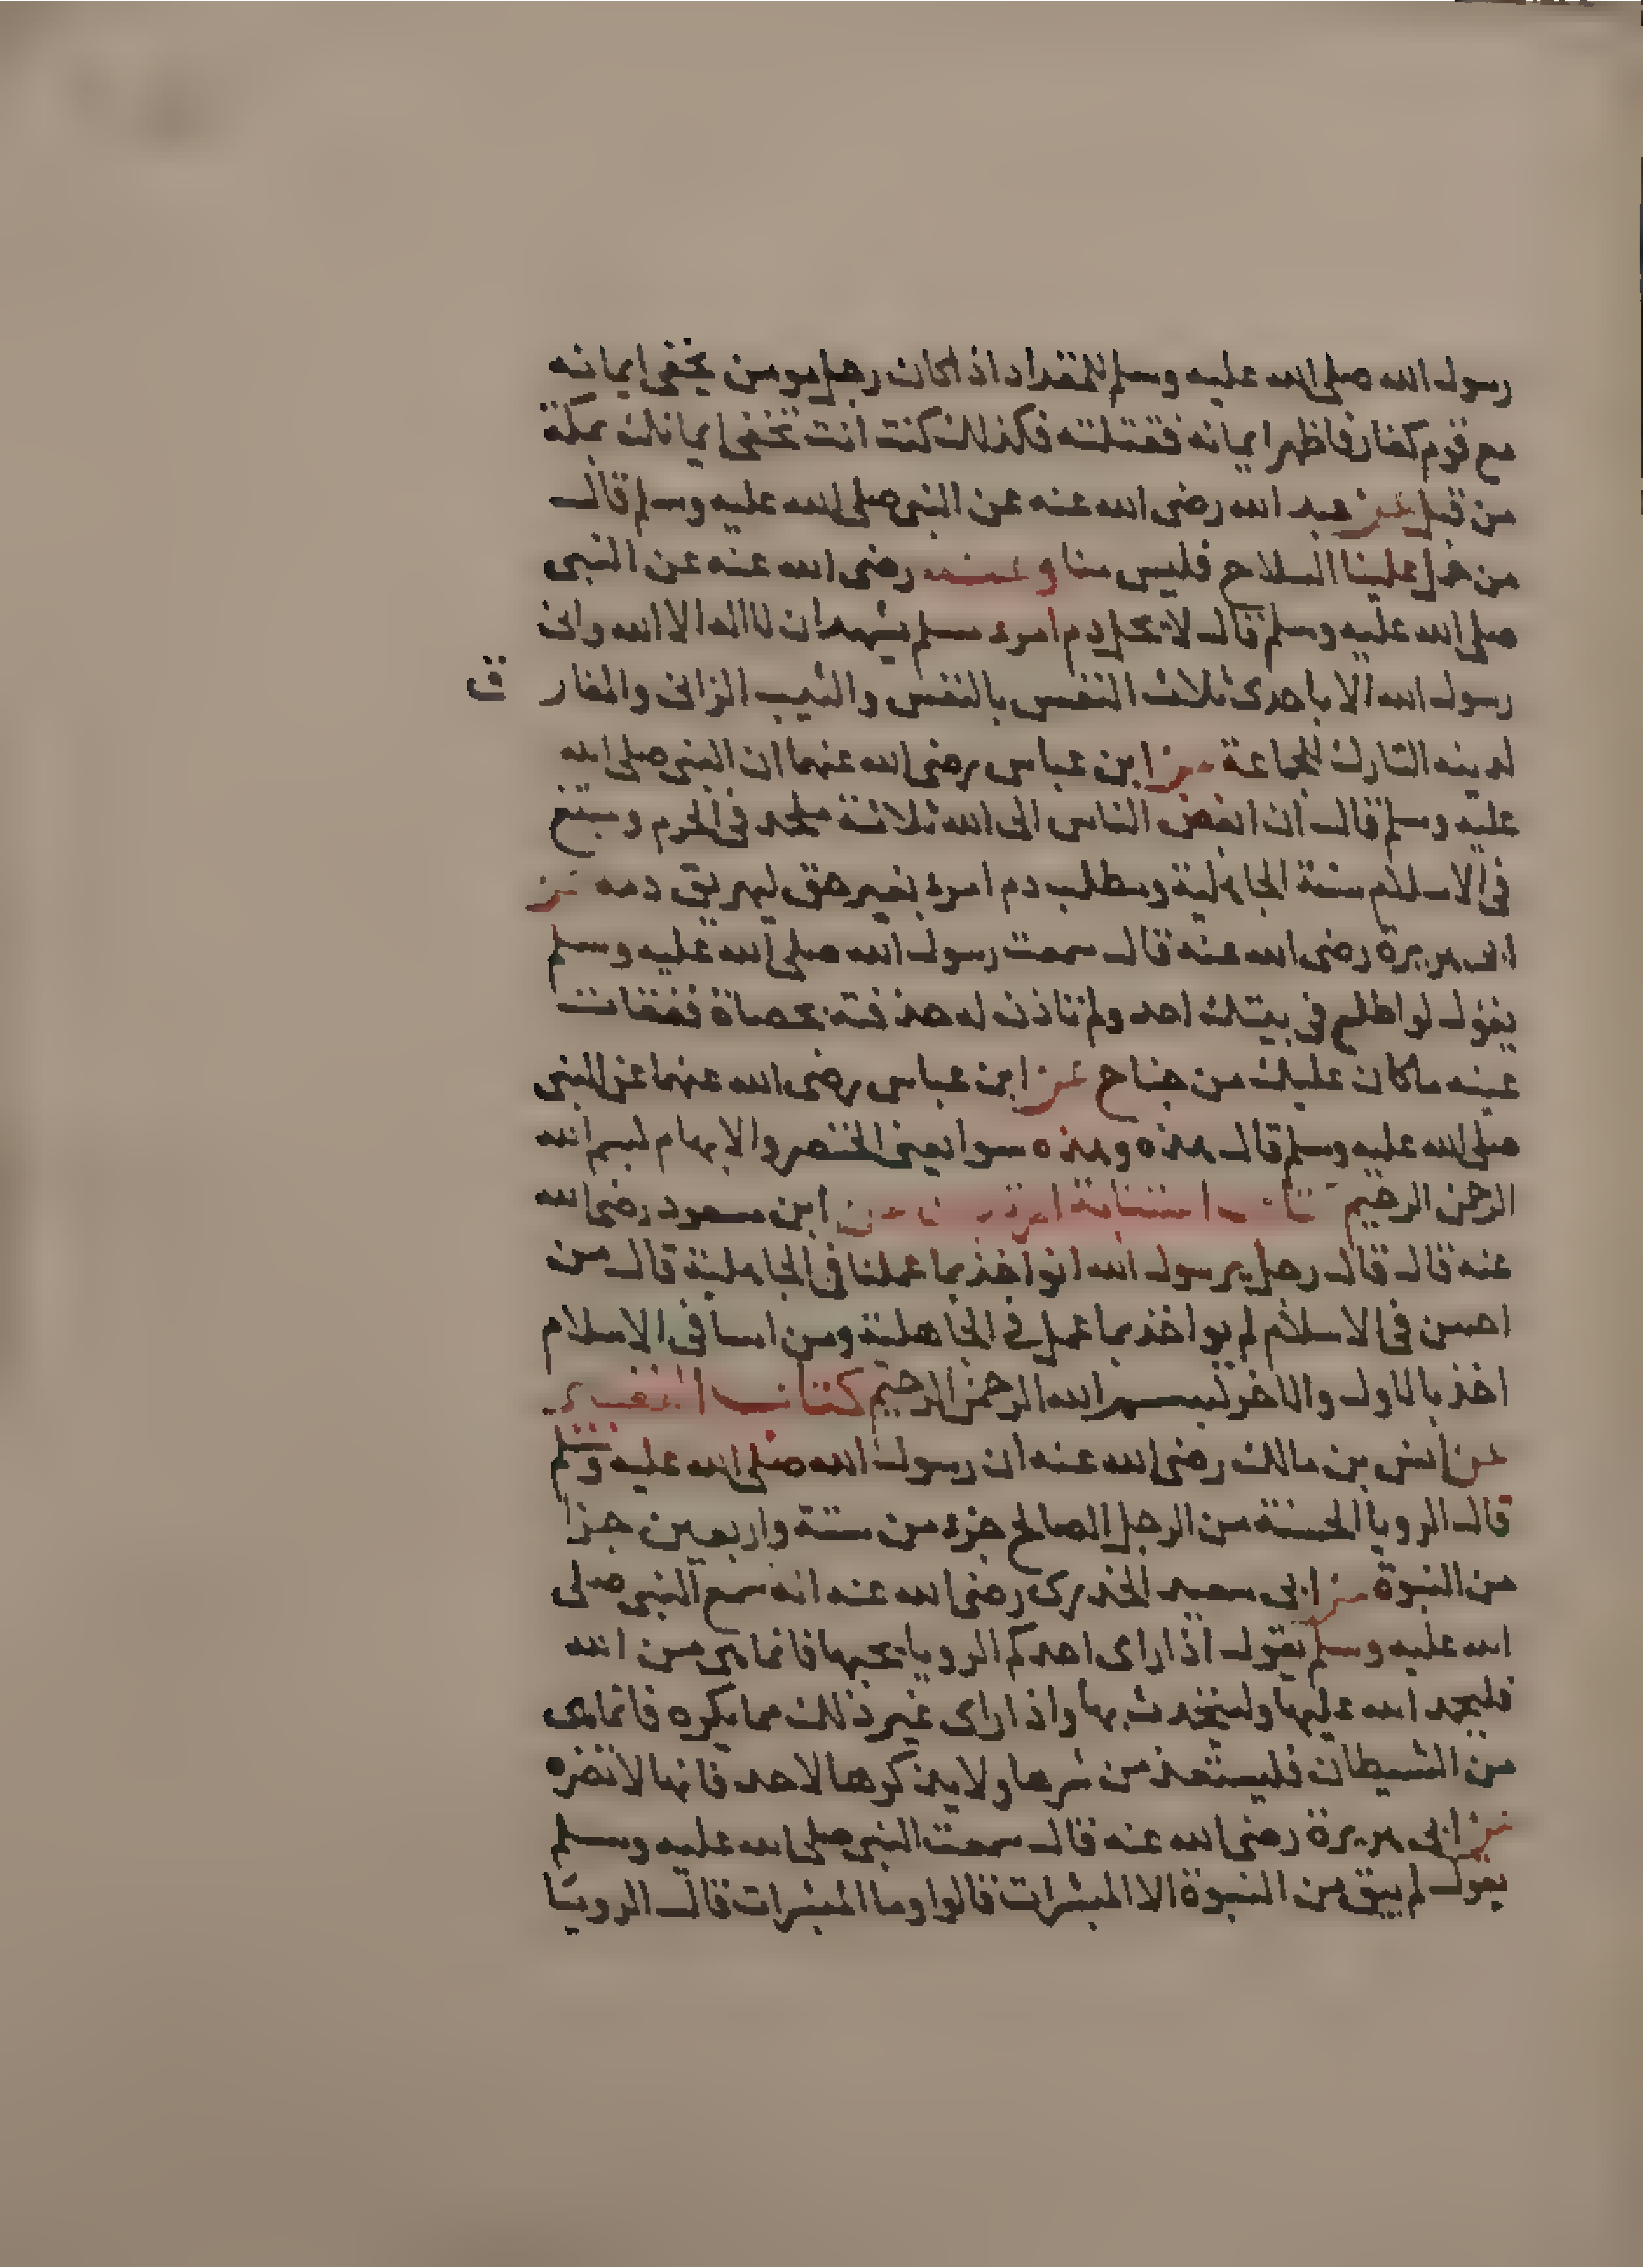 رسول الله صلى الله عليه وسلم للمقداد اذا كان رجل مومن يخفى ايمانه
مع قوم كفار فاظهر ايمانه فقتلته فكذلك كنت انت تخفى ايمانك بمكة
من قبل عن عبد الله رضى الله عنه عن النبى صلى الله عليه وسلم قال
من حمل علينا السلاح فليس منا وعنه رضى الله عنه عن النبى
صلى الله عليه وسلم قال لا تحل دم امرء مسلم يشهد ان لا اله الا الله وانى
رسول الله الا باحدى ثلاث النفس بالنفس والثيب الزانى والمفار ق
لدينه التارك للجماعة عن ابن عباس رضى الله عنهما ان النبى صلى الله
عليه وسلم قال ان ابغض الناس الى الله ثلاثة ملحد فى الحرم ومبتغ
فى الاسلام سنة الجاهلية ومطلب دم امرء بغير حق ليهريق دمه عن
ابى هريرة رضى الله عنه قال سمعت رسول الله صلى الله عليه وسلم
يقول لو اطلع فى بيتك احد ولم تاذن له حذفته بحصاة ففقات
عينه ما كان عليك من جناح عن ابن عباس رضى الله عنهما عن النبى
صلى الله عليه وسلم قال هذه وهذه سوا يعنى الخنصر والابهام بسم الله
الرحمن الرحيم كتاب استتابة المرتدين عن ابن مسعود رضى الله
عنه قال قال رجل يرسول الله انواخذ بما عملنا فى الجاهلية قال من
احسن فى الاسلام لم يواخذ بما عمل فى الجاهلية ومن اسا فى الاسلام
اخذ بالاول والاخر بسم الله الرحمن الرحيم كتاب التعبير
عن انس بن مالك رضى الله عنه ان رسول الله صلى الله عليه وسلم
قال الرويا الحسنة من الرجل الصالح جزء من ستة واربعين جزا
من النبوة عن ابى سعيد الخدرى رضى الله عنه انه سمع النبى صلى
الله عليه وسلم يقول اذا راى احدكم الرويا يحبها فانما هى من الله
فليحمد الله عليها وليتحدث بها واذا راى غير ذلك مما يكره فانما هى
من الشيطان فليستعذ من شرها ولا يذكرها لاحد فانها لا تضره
عن ابى هريرة رضى الله عنه قال سمعت النبى صلى الله عليه وسلم
يقول لم يبق من النبوة الا المبشرات قالوا وما المبشرات قال الرويا